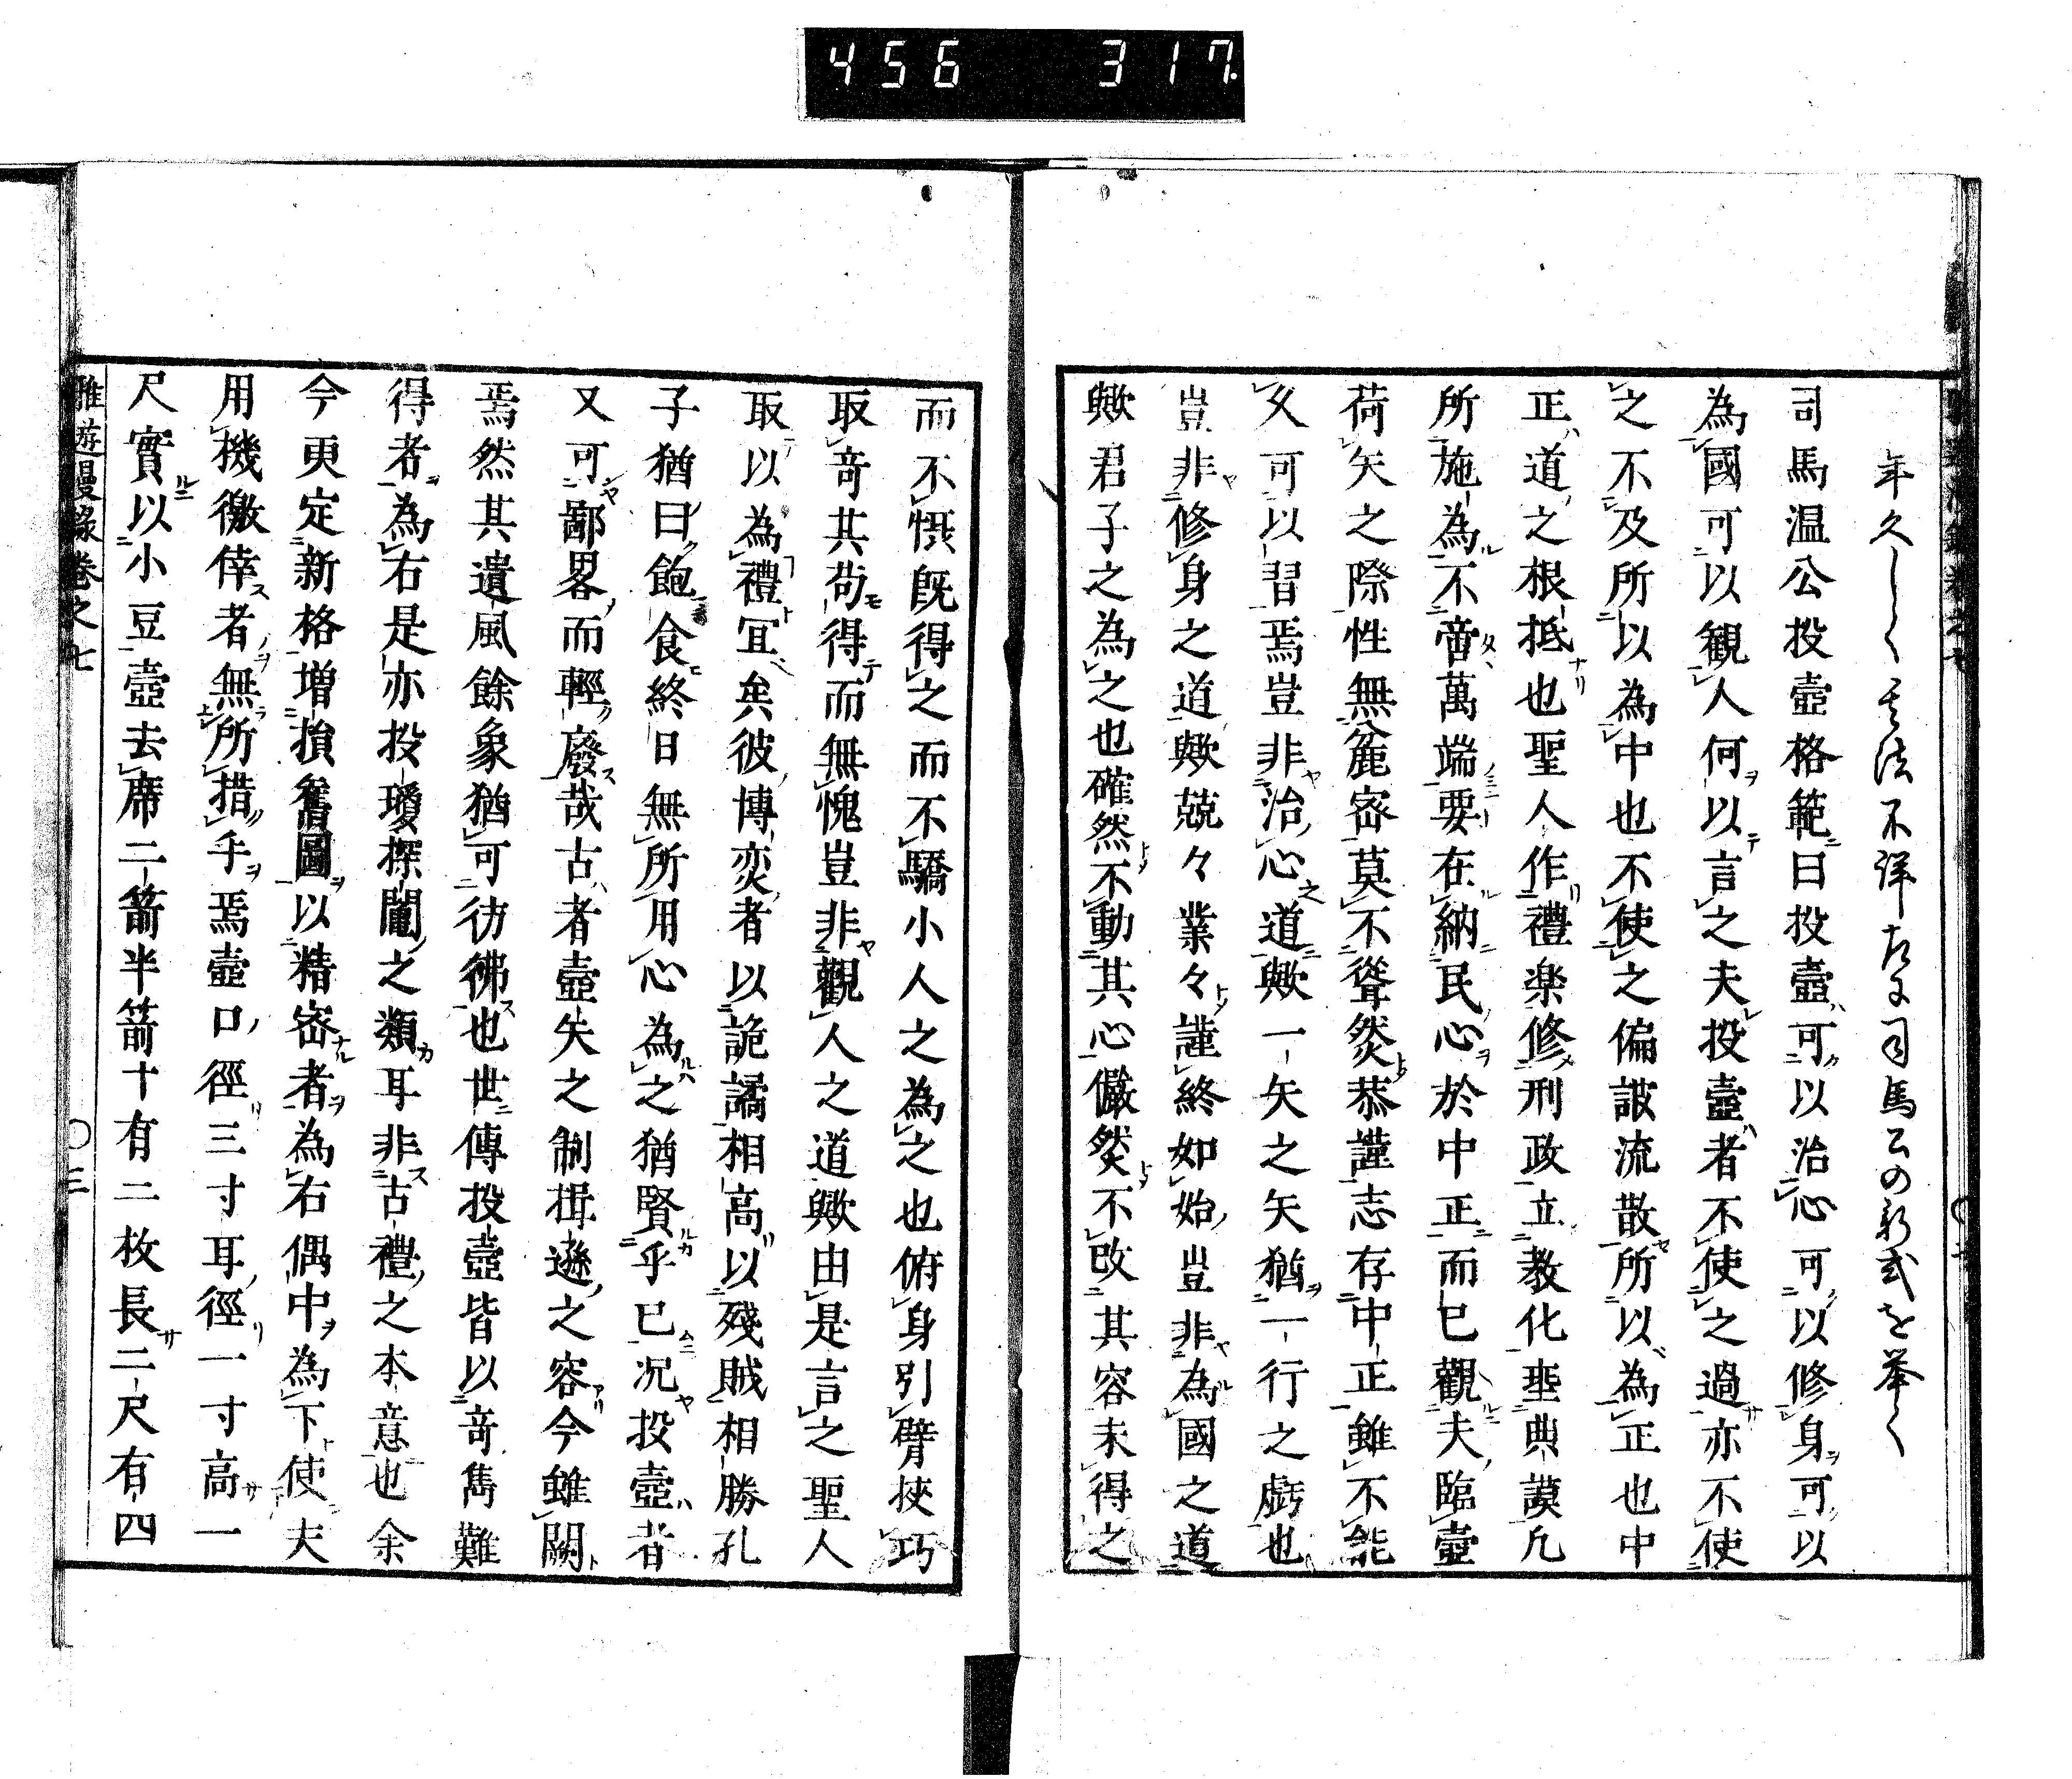 456 317
年久しく其法不詳故に司馬公の新式を挙く
司馬温公投壺格範曰投壺可以治心可以修身可以
為國可以観人何以言之夫投壺者不使之過亦不使
之不及所以為中也不使之偏詖流散所以為正也中
正道之根抵也聖人作禮楽修刑政立教化垂典謨凡
所施為不啻萬端要在納民心於中正而已觀夫臨壺
荷矢之際性無麁密莫不聳然恭謹志存中正雖不能
久可以習焉豈非治心道歟一矢之矢猶一行之虧也
豈非修身之道歟兢々業々謹終如始豈非為國之道
歟君子之為之也確然不動其心儼然不改其容未得之
而不慑既得之而不驕小人之為之也俯身引臂挾巧
取竒其苟得而無愧豈非觀人之道歟由是言之聖人
取以為禮宜矣彼博奕者以詭譎相高以殘賊相勝孔
子猶曰飽食終日無所用心為之猶賢乎已况投壺者
又可鄙畧而輕廢哉古者壺矢之制揖遜之容今雖闕
焉然其遺風餘象猶可彷彿也世傳投壺皆以竒雋難
得者為右是亦投瓊探鬮之類耳非古禮之本意也余
今更定新格増損舊圖以精密者為右偶中為下使夫
用機徼倖者無所措手焉壺口徑三寸耳徑一寸高一
尺實以小豆壺去席二箭半箭十有二枚長二尺有四
雅遊漫録卷之七
〇三